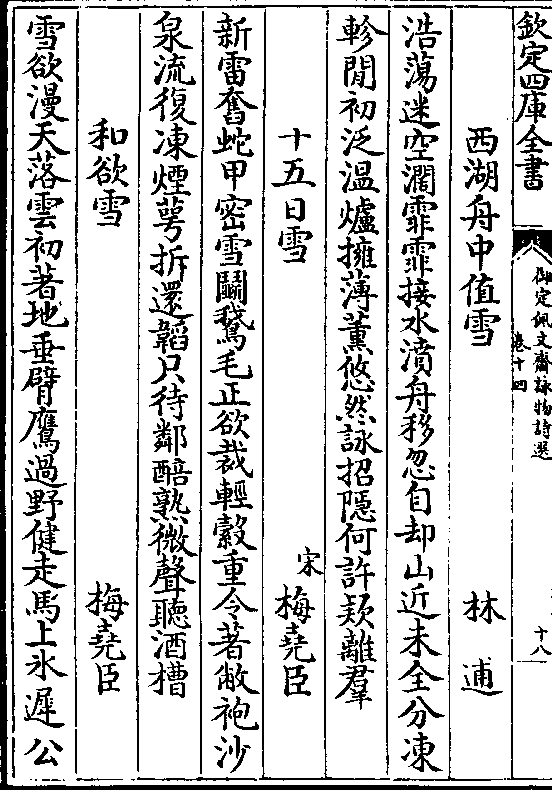 欽定四庫全書
御定佩文齋詠物詩選
卷十四
十八
西湖舟中值雪
林逋
浩蕩迷空濶霏霏接水濆舟移忽自却山近未全分凍
軫閒初泛温爐擁薄薰悠然詠招隠何許欵離羣
十五日雪
宋梅堯臣
新雷奮蛇甲密雪鬭鵞毛正欲裁輕縠重令著敝袍沙
泉流復凍煙萼拆還韜只待鄰醅熟微聲聽酒槽
和欲雪
梅堯臣
雪欲漫天落雲初著地垂臂鷹過野健走馬上氷遲公